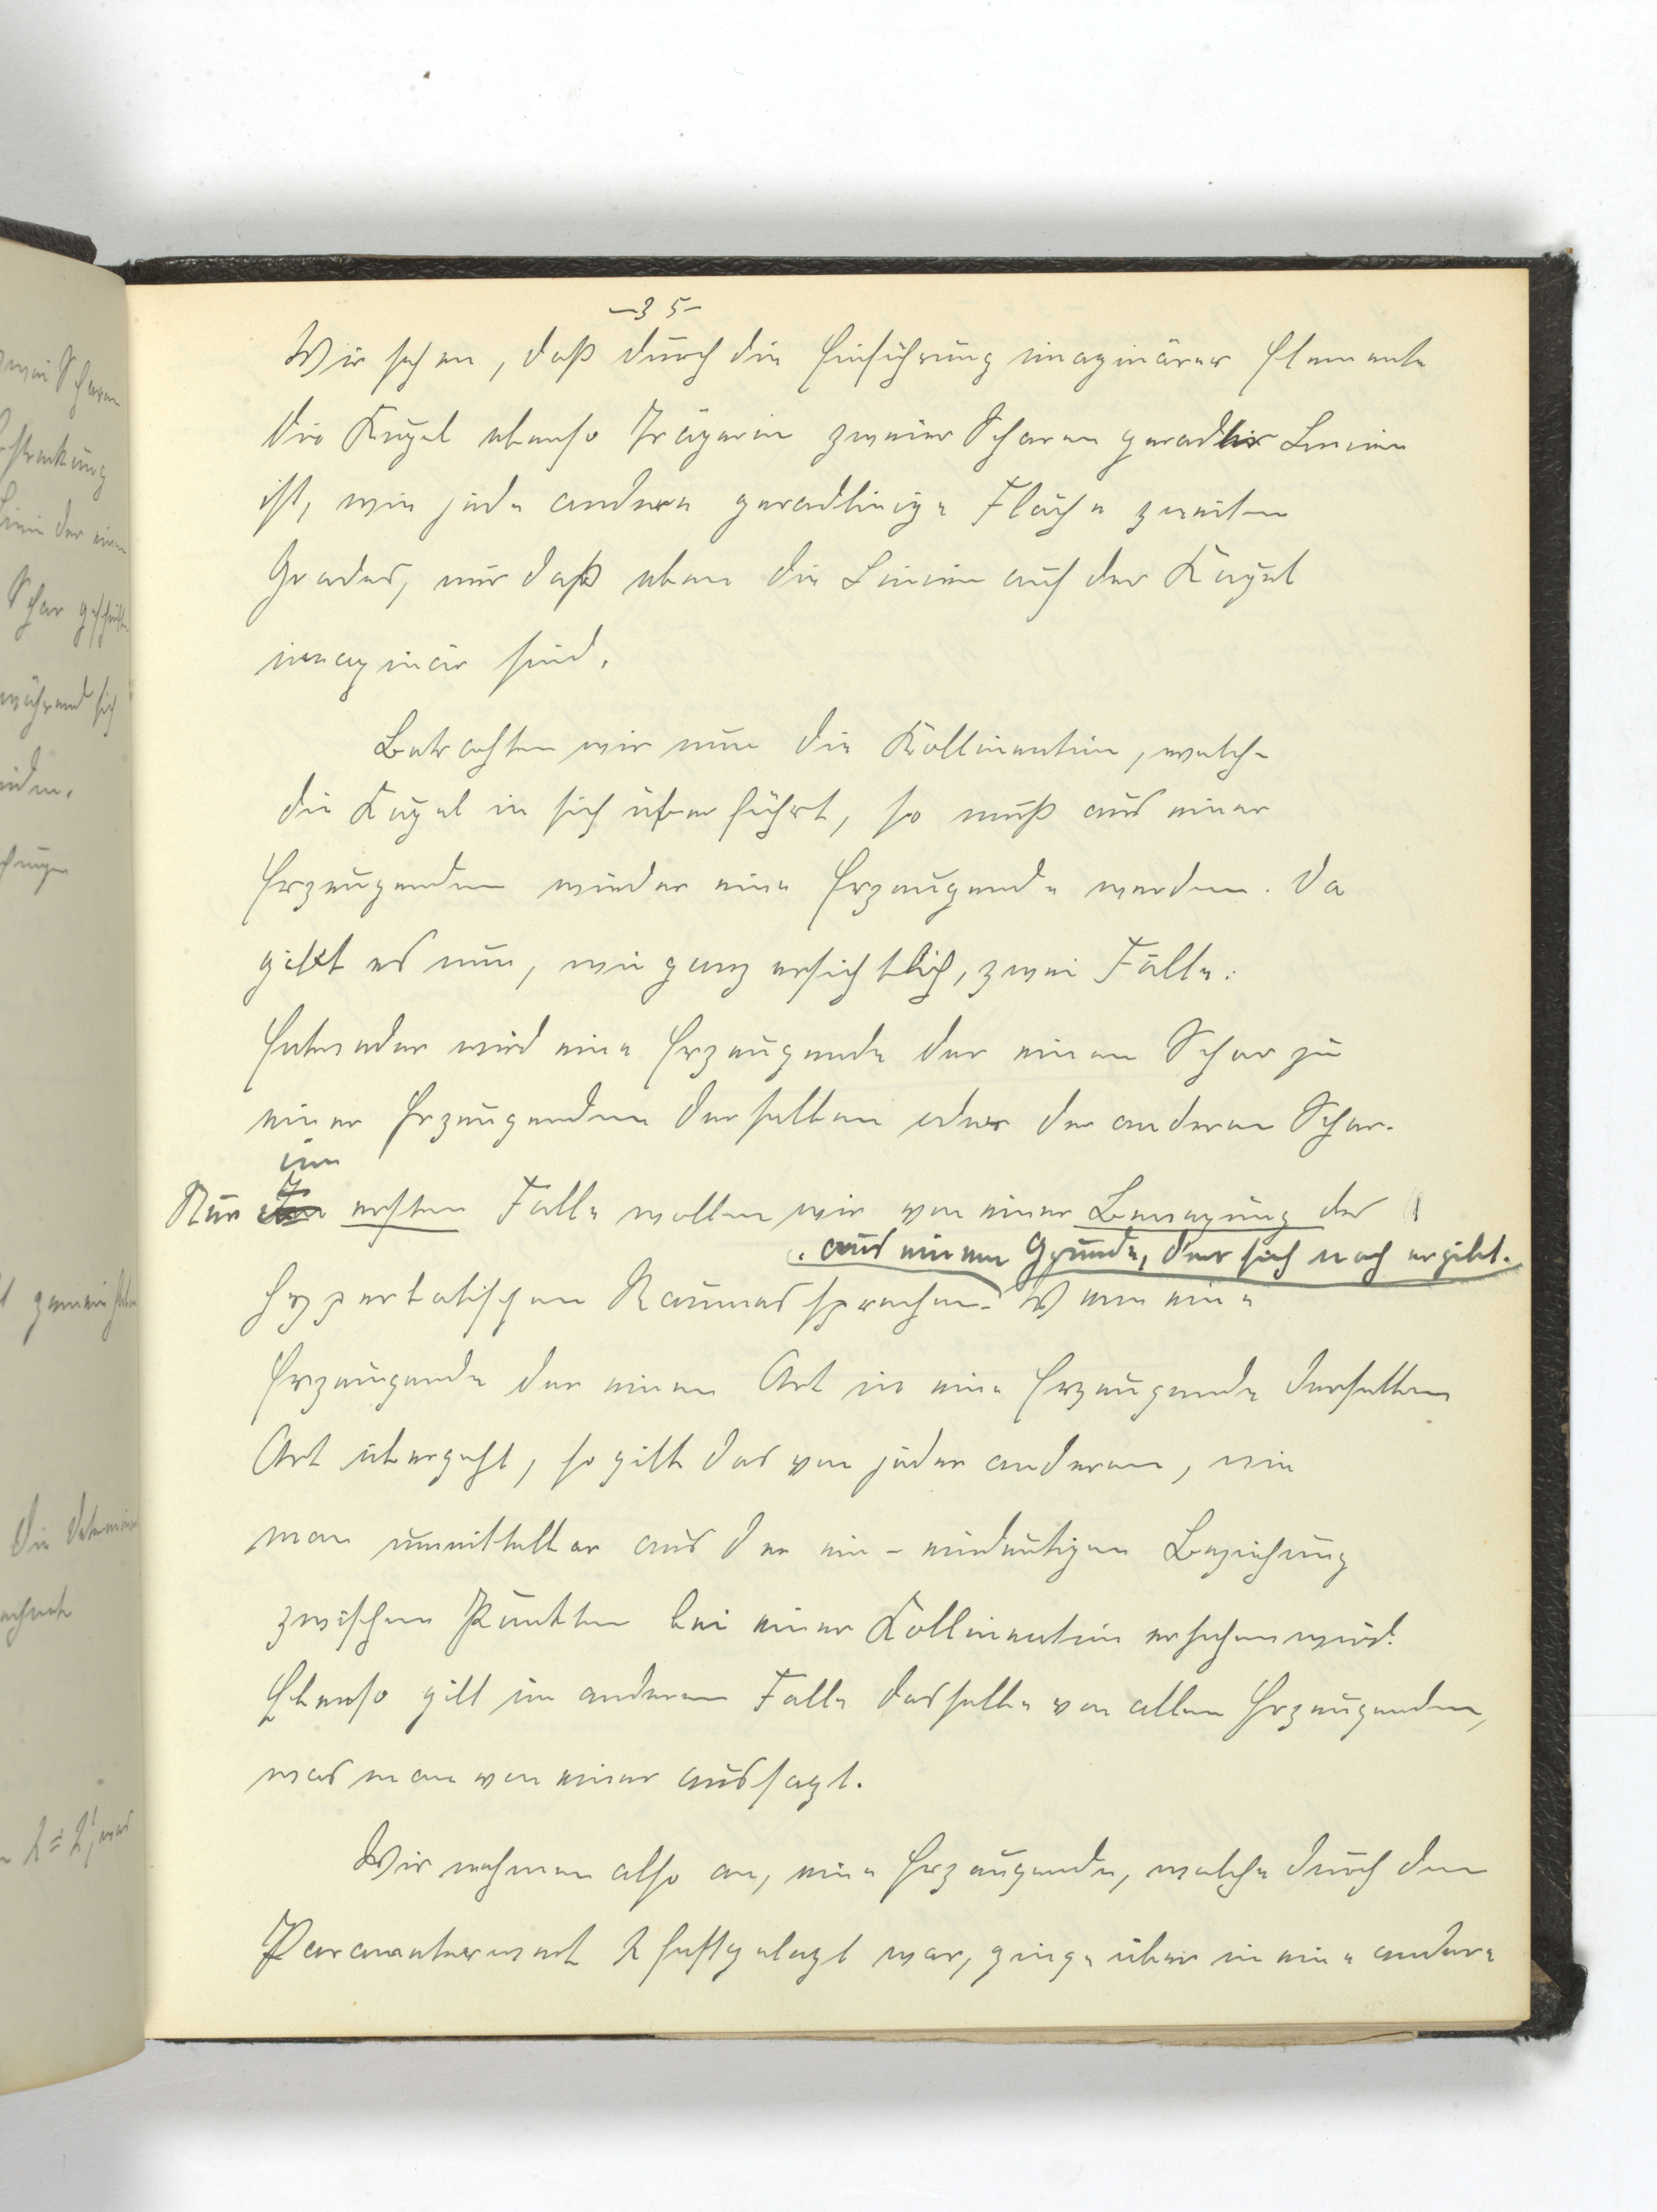 -35-
Wir sehen, daß durch die Einführung imaginärer Elemente
die Kugel ebenso Trägerin zweier Scharen gerader Linien
ist, wie jede andere geradlinige Fläche zweiten
Grades, nur daß eben die Linien auf der Kugel
imaginär sind.
Betrachten wir nun die Kollineation, welche
die Kugel in sich überführt, so muß aus einer
Erzeugenden wieder eine Erzeugende werden. Da
gibt es nun, wie ganz ersichtlich, zwei Fälle:
Entweder wird eine Erzeugende der einen Schar zu
einer Erzeugenden derselben oder der anderen Schar.
im
Nur ersten Falle wollen wir von einer Bewegung des
, aus einem Grunde, der sich noch ergibt.
hyperbolischen Raumes sprechen. Wenn eine
Erzeugende der einen Art in eine Erzeugende derselben
Art übergeht, so gilt das von jeder anderen, wie
man unmittelbar aus der ein-eindeutigen Beziehung
zwischen Punkten bei einer Kollineation ersehen wird.
Ebenso gilt im anderen Falle dasselbe von allen Erzeugenden,
was man von einer aussagt.
Wir nehmen also an, eine Erzeugende, welche durch den
Parameterwert λ festgelegt war, ginge über in eine andere
zwei Scharen
Linie der einen
Schar
während sich
Die
λ = λ', was